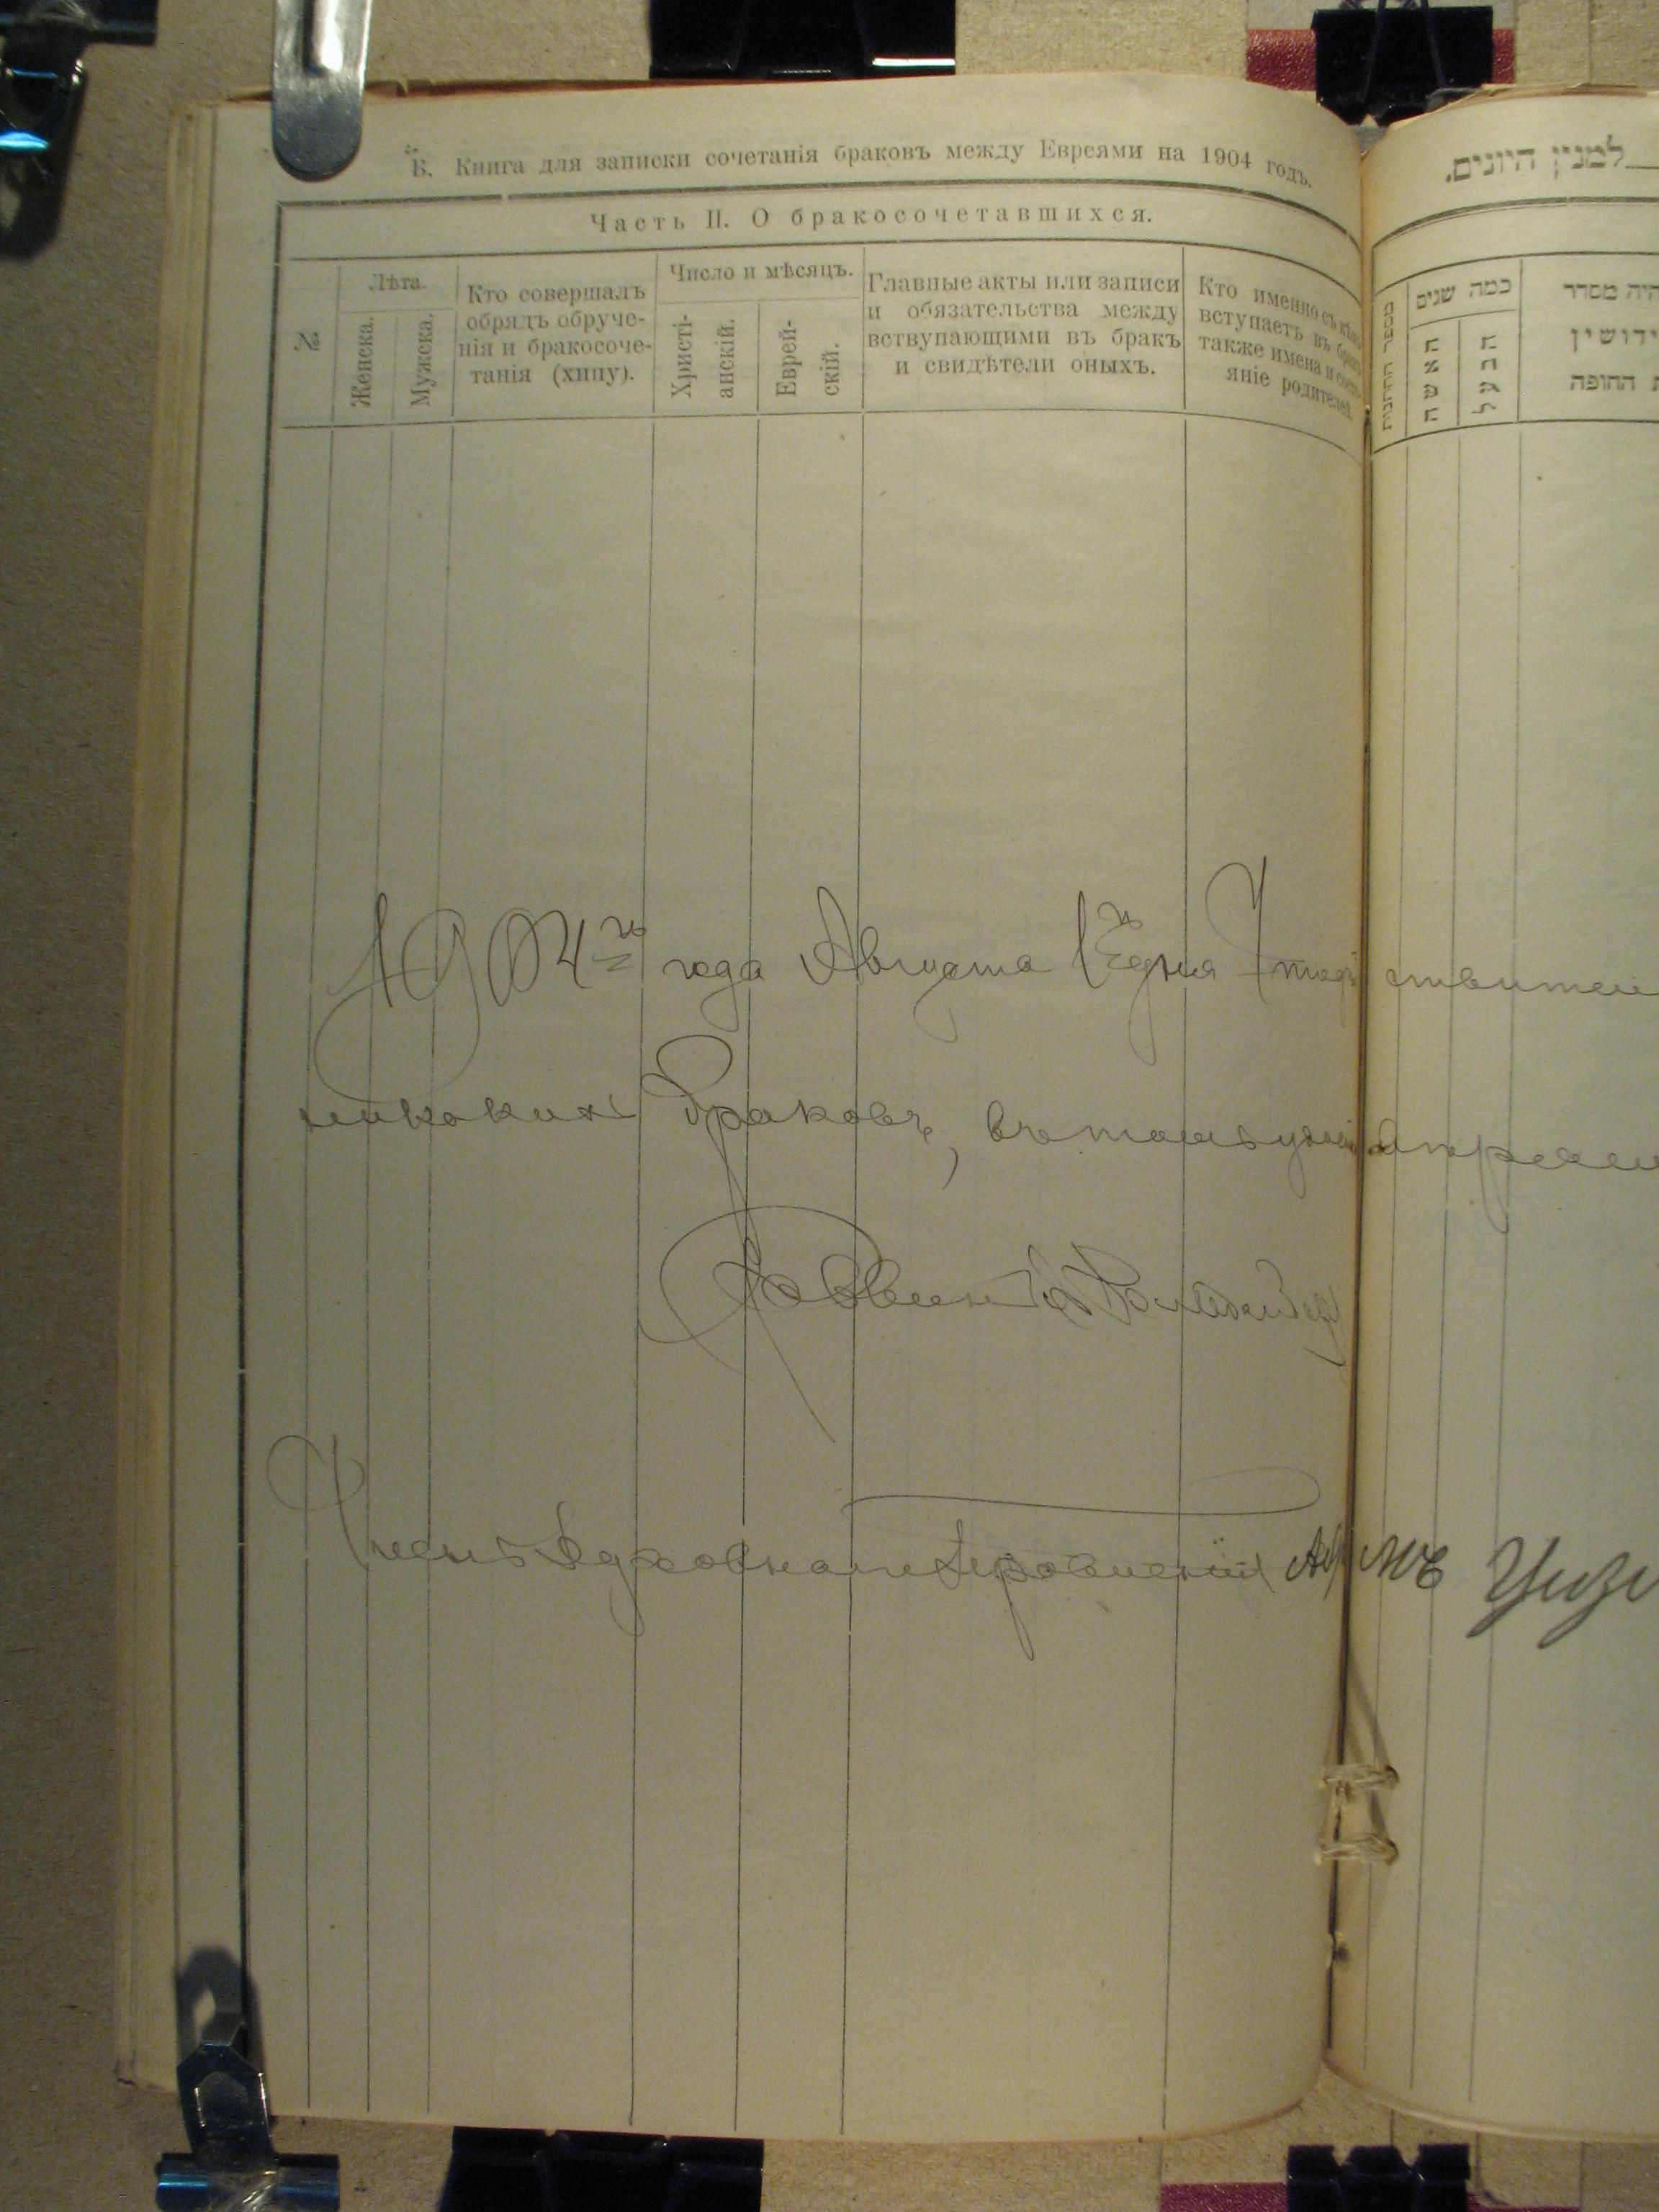 Б. Книга для записки сочетанія браковъ между Евреями на 1904 годъ.
Часть II. О бракосочетавшихся.
№
Лѣта.
Женска.
Мужска.
Кто совершалъ
обрядъ обруче-
нія и бракосоче-
танія (хипу).
Число и мѣсяцъ.
Христі-
анскій.
Еврей-
скій.
Главные акты или записи
и обязательства между
вступающими въ бракъ
и свидѣтели оныхъ.
Кто именно съ кѣмъ
вступаетъ въ бракъ
также имена и состо-
яніе родителей.
1904 года Августа 1 дня
никакихъ браковъ, въ томъ
Раввинъ
Членъ Духовнаго Правленія
למנין היונים.
מספר החתונות
כמה שנים
האשה
הבעל
היה מסדר
ידושין
החופה